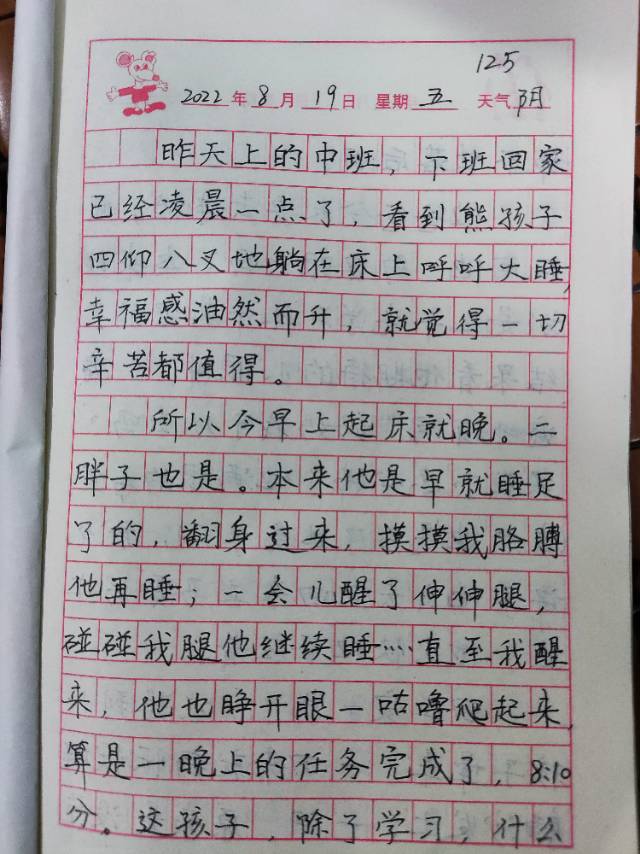 125
2022年8月19日 星期五 天气阴
昨天上的中班，下班回家
已经凌晨一点了，看到熊孩子
四仰八叉地躺在床上呼呼大睡，
幸福感油然而升，就觉得一切
辛苦都值得。
所以今早上起床就晚。二
胖子也是。本来他是早就睡足
了的，翻身过来，摸摸我胳膊
他再睡；一会儿醒了伸伸腿，
碰碰我腿他继续睡……直至我醒
来，他也睁开眼一咕噜爬起来，
算是一晚上的任务完成了，8:10
分。这孩子，除了学习，什么